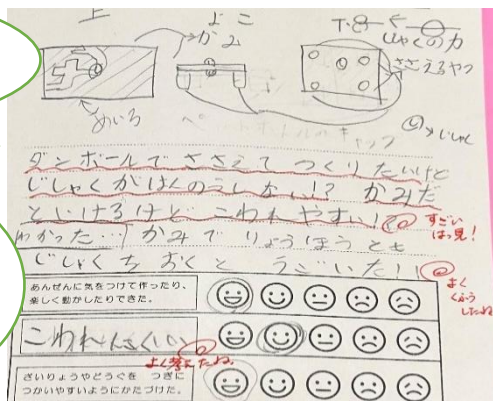 上
よこ
かみ
じしゃくの力
ささえるやつ
めいろ
じしゃく
ペットボトルのキャップ
ダンボールでささえてつくりたいけど
じしゃくがはんのうしない!? かみだ
といけるけどこわれやすい!?
すごい
はっ見!
わかった… かみでりょうほうとも
じしゃくちおくとうごいた!!
よく
くふう
したね
あんぜんに気をつけて作ったり、
楽しく動かしたりできた。
こわれんくくいい
よく考えたね。
ざいりょうやどうぐを つぎに
つかいやすいようにかたづけた。